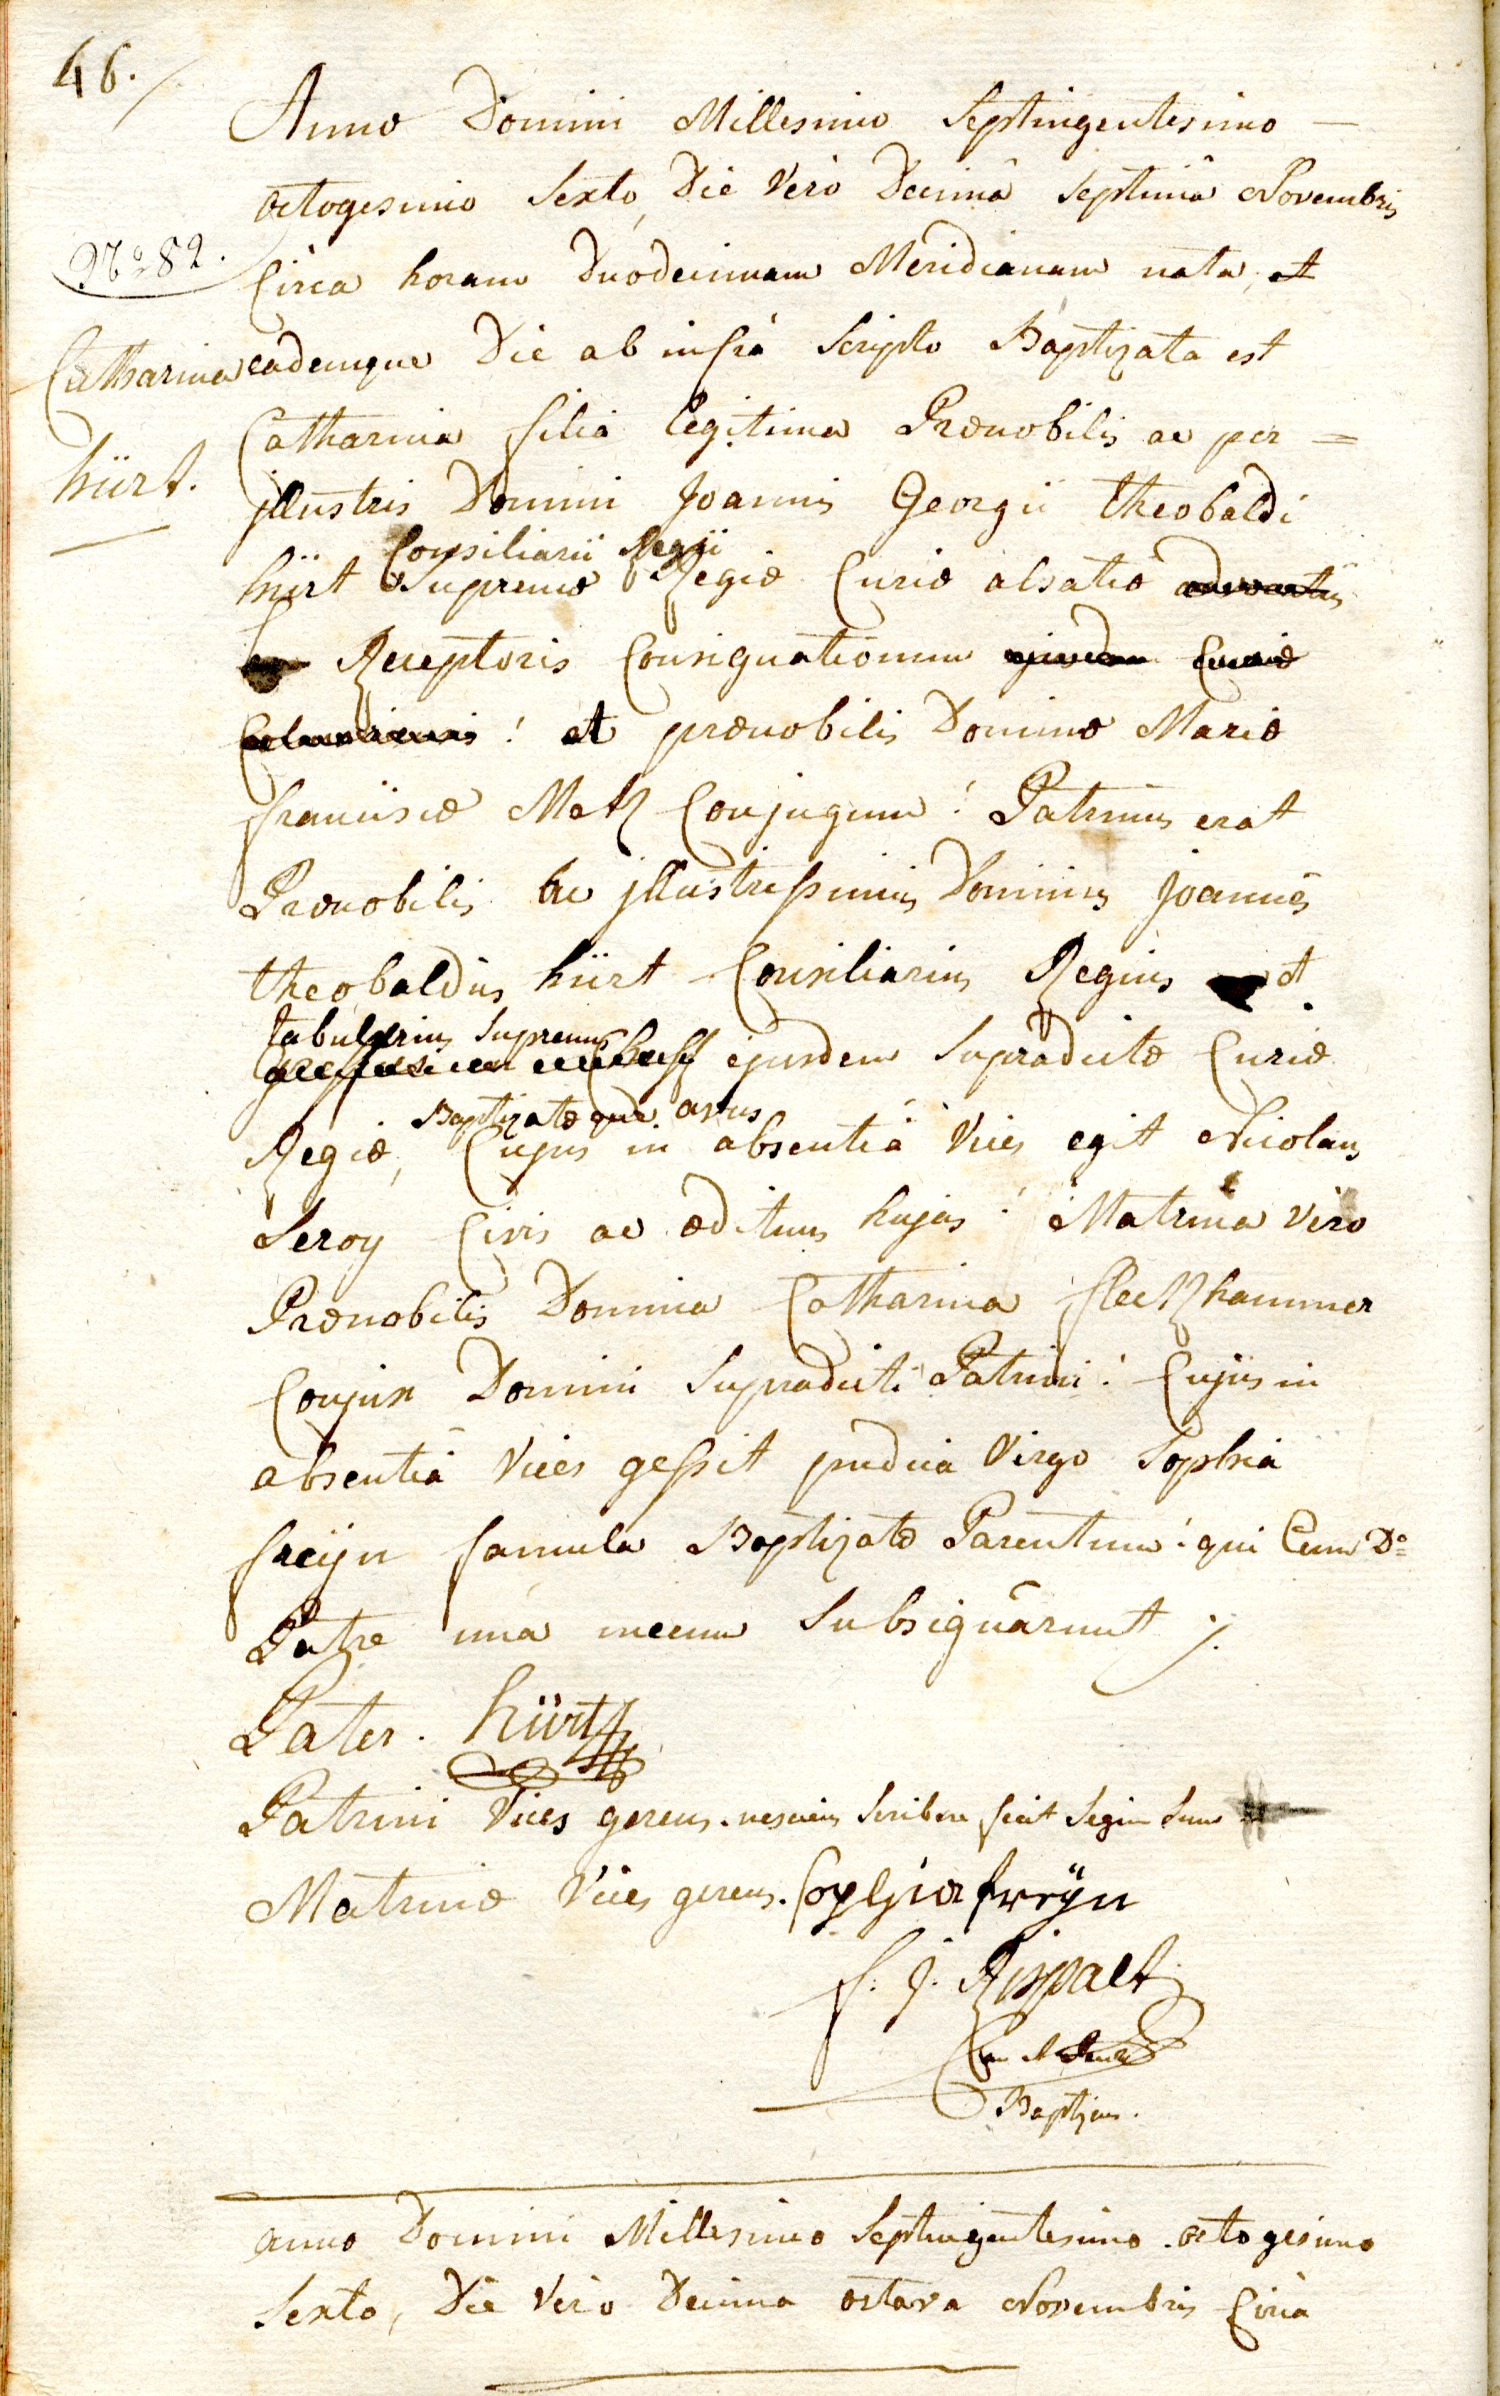 46.
Anno Domini Millesimo Septingentesimo —
octogesimo Sexto, Die Verò Decimâ Septimâ Novembris
N° 82.
Circa horam Duodecimam Meridianam nata, et
Catharina
eademque Die ab infrà Scripto Baptizata est
Catharina filia legitima Prænobilis ac per =
hürt.
jllustris Domini Joannis Georgii Theobaldi
Consiliarii Regii
hürt Supremæ Regiæ Curiæ alsatiæ
Receptoris Consignationum ejusdem Curiæ
Columbariensis : et prænobilis Dominæ Mariæ
franciscæ Metz Conjugum : Patrinus erat
Prænobilis ac jllustrissimus Dominus Joannes
theobaldus hürt Consiliarius Regius et
tabularius Supremus
ejusdem Supradictæ Curiæ
Baptizatæ que avus
Regiæ, Cujus in absentiâ Vices egit Nicolaus
Leroy Civis ac ædituus hujas : Matrina Vero
Prænobilis Domina Catharina fleckhammer
Conjux Domini Supradicti Patrini : Cujus in
absentiâ Vices gessit pudica Virgo Sophia
freijn famula Baptizatæ Parentum : qui Cum D°
Patre una mecum Subsignârunt ./.
Pater. hürt
Patrini Vices gerens. nesciens Scribere fecit Signum Suum
Matrinæ Vices gerens. Sophia freÿn
f. J. Rispalt
Baptizans.
anno Domini Millesimo Septingentesimo octogesimo
Sexto, Die Verò Decima octava Novembris Circà